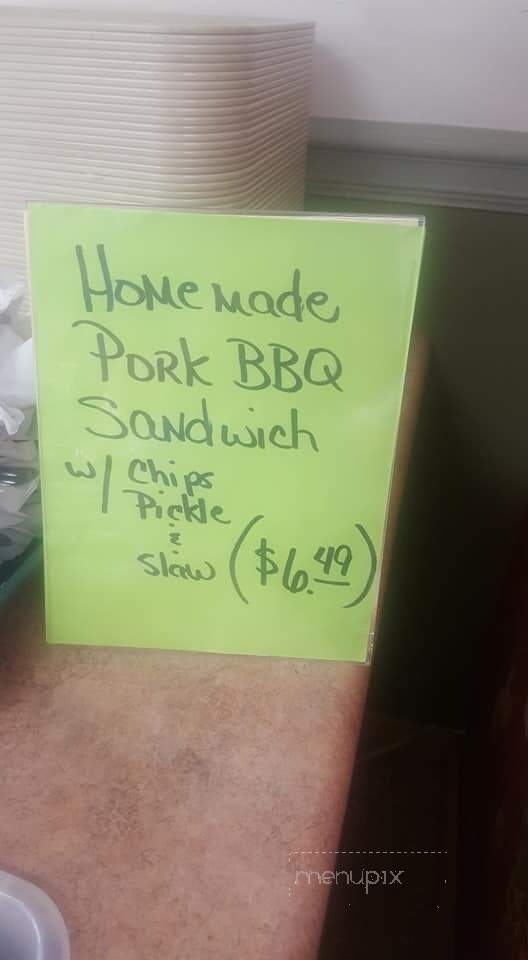 Homemade
Pork BBQ
Sandwich
w/ Chips
Pickle
&
Slaw ($6.49)
menupix